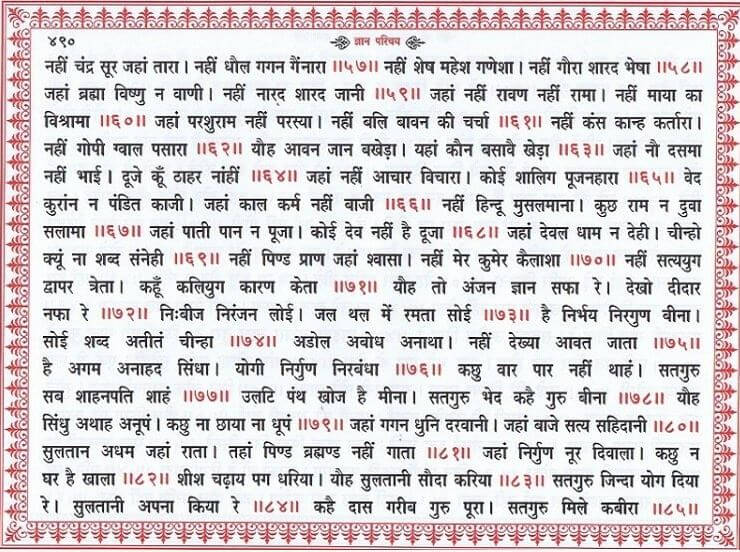 ४९०
ज्ञान परिचय
नहीं चंद्र सूर जहां तारा। नहीं धौल गगन गैंनारा ॥५७॥ नहीं शेष महेश गणेशा। नहीं गौरा शारद भेषा ॥५८॥
जहां ब्रह्मा विष्णु न वाणी। नहीं नारद शारद जानी ॥५९॥ जहां नहीं रावण नहीं रामा। नहीं माया का
विश्रामा ॥६०॥ जहां परशुराम नहीं परस्या। नहीं बलि बावन की चर्चा ॥६१॥ नहीं कंस कान्ह कर्तारा।
नहीं गोपी ग्वाल पसारा ॥६२॥ यौह आवन जान बखेड़ा। यहां कौन बसावै खेड़ा ॥६३॥ जहां नौ दसमा
नहीं भाई। दूजे कूँ ठाहर नांहीं ॥६४॥ जहां नहीं आचार विचारा। कोई शालिग पूजनहारा ॥६५॥ वेद
कुरांन न पंडित काजी। जहां काल कर्म नहीं बाजी ॥६६॥ नहीं हिन्दू मुसलमाना। कुछ राम न दुवा
सलामा ॥६७॥ जहां पाती पान न पूजा। कोई देव नहीं है दूजा ॥६८॥ जहां देवल धाम न देही। चीन्हो
क्यूं ना शब्द संनेही ॥६९॥ नहीं पिण्ड प्राण जहां श्वासा। नहीं मेर कुमेर कैलाशा ॥७०॥ नहीं सत्ययुग
द्वापर त्रेता। कहूँ कलियुग कारण केता ॥७१॥ यौह तो अंजन ज्ञान सफा रे। देखो दीदार
नफा रे ॥७२॥ निःबीज निरंजन लोई। जल थल में रमता सोई ॥७३॥ है निर्भय निरगुण बीना।
सोई शब्द अतीतं चीन्हा ॥७४॥ अडोल अवोध अनाथा। नहीं देख्या आवत जाता ॥७५॥
है अगम अनाहद सिंधा। योगी निर्गुण निरबंधा ॥७६॥ कछु वार पार नहीं थाहं। सतगुरु
सब शाहनपति शाहं ॥७७॥ उलटि पंथ खोज है मीना। सतगुरु भेद कहै गुरु बीना ॥७८॥ यौह
सिंधु अथाह अनूपं। कछु ना छाया ना धूपं ॥७९॥ जहां गगन धुनि दरवानी। जहां बाजे सत्य सहिदानी ॥८०॥
सुलतान अधम जहां राता। तहां पिण्ड ब्रह्मण्ड नहीं गाता ॥८१॥ जहां निर्गुण नूर दिवाला। कछु न
घर है खाला ॥८२॥ शीश चढ़ाय पग धरिया। यौह सुलतानी सौदा करिया ॥८३॥ सतगुरु जिन्दा योग दिया
रे। सुलतानी अपना किया रे ॥८४॥ कहै दास गरीब गुरु पूरा। सतगुरु मिले कबीरा ॥८५॥